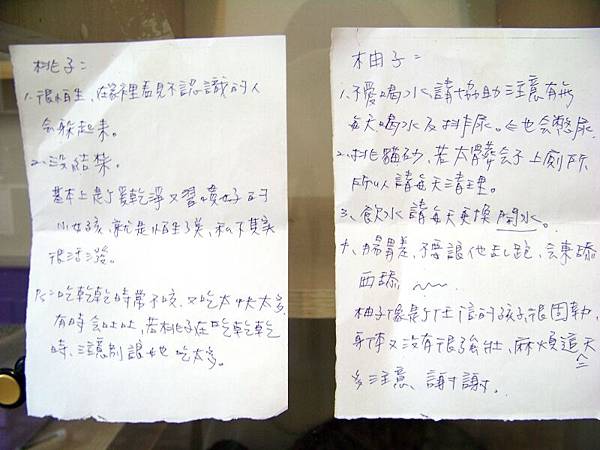 桃子：
1. 很怕生、在家裡看見不認識的人
會躲起來。
2. 沒結紮。
基本上是个愛乾淨又習慣好的
小女孩，就是怕生了點，私下其實
很活潑。
PS：吃乾乾時常不咬，又吃太快太多，
有時會吐，若桃子在吃乾乾
時、注意別讓她吃太多。
柚子：
1. 不愛喝水，請協助注意有無
每天喝水及排尿。也会憋尿
2. 挑貓砂，若太髒会不上廁所
所以請每天清理。
3. 飲水請每天更換開水。
腸胃差，不要讓他乱跑，会東舔
西舔
柚子像是个任性的孩子，很固執，
身体又沒有很強壯，麻煩這天
多注意、謝謝。